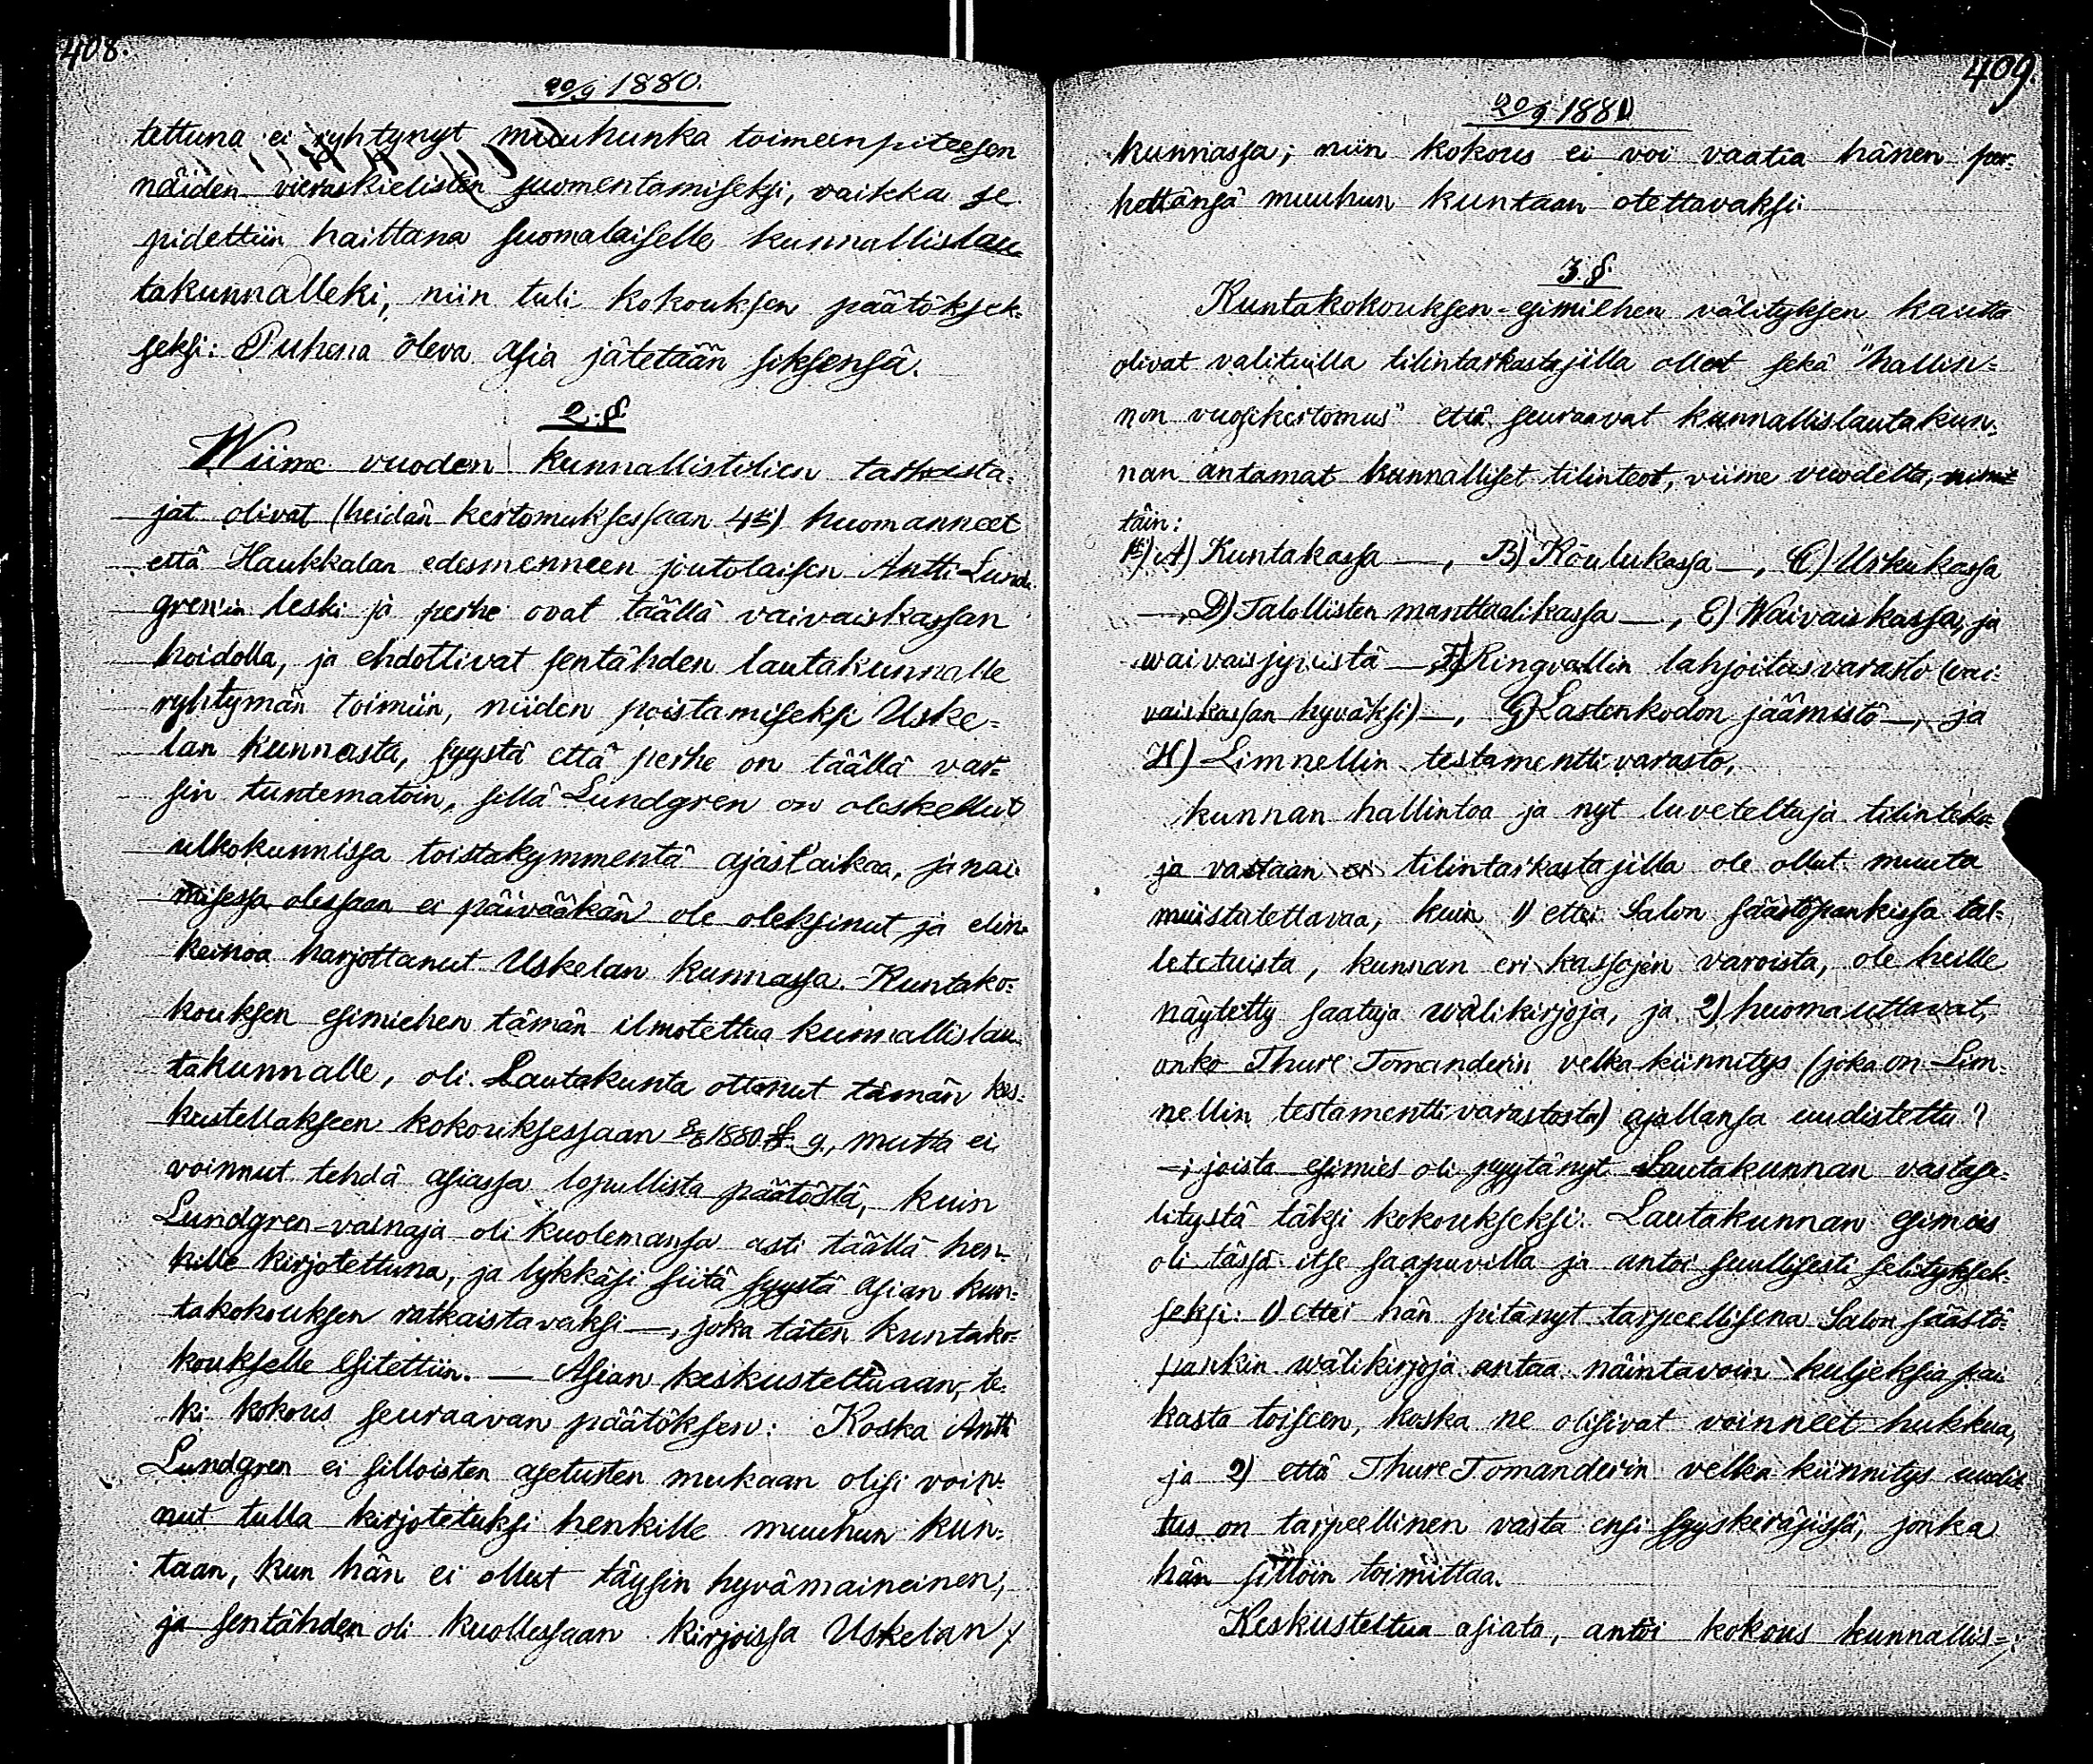 408.
20/9 1880.
tettuna ei ryhtynyt muuhunka toimeenpiteesen
näiden vieraskielisten suomentamiseksi, vaikka se
pidettiin haittana suomalaiselle kunnallislau-
takunnalleki, niin tuli kokouksen päätöksek-
seksi: Puhena oleva asia jätetään siksensä.
2.§
Wiime vuoden kunnallistilien tarkasta-
jat olivat (heidän kertomuksessaan 4ksi) huomanneet
että Haukkalan edesmenneen joutolaisen Antti Lund-
grenin leski ja perhe ovat täällä vaivaiskassan
hoidolla, ja ehdottivat sentähden lautakunnalle
ryhtymän toimiin, niiden poistamiseksi Uske=
lan kunnasta, syystä että perhe on täällä var=
sin tuntematoin, sillä Lundgren on oleskellut
ulkokunnissa toistakymmentä ajast'aikaa, ja nai-
misessa olessaan ei päivääkän ole oleksinut ja elin-
keinoa harjottanut Uskelan kunnassa. Kuntako=
kouksen esimiehen tämän ilmotettua kunnallislau-
takunnalle, oli Lautakunta ottanut tämän kes-
kustellakseen kokouksessaan 8/8 1880 §. 9., mutta ei
voinnut tehdä asiassa lopullista päätöstä, kuin
Lundgren-vainaja oli kuolemansa asti täällä hen-
kille kirjotettuna, ja lykkäsi siitä syystä asian kun=
takokouksen ratkaistavaksi —, joka täten kuntako=
koukselle esitettiin. — Asian keskusteltuaan, te-
ki kokous seuraavan päätöksen: Koska Antti
Lundgren ei silloisten asetusten mukaan olisi voin-
nut tulla kirjotetuksi henkille muuhun kun=
taan, kun hän ei ollut täysin hyvämaineinen,
ja sentähden oli kuollessaan kirjoissa Uskelan
409.
20/9 1880
kunnassa; niin kokous ei voi vaatia hänen per-
hettänsä muuhun kuntaan otettavaksi.
3.§.
Kuntakokouksen-esimiehen välityksen kautta
olivat valituilla tilintarkastajilla olleet sekä "hallin=
non vuosikertomus" että seuraavat kunnallislautakun-
nan antamat kunnalliset tilinteot, viime vuodelta, nimit
täin:
1ksi) A) Kuntakassa —, B) Koulukassa —, C) Urkukassa
—, D) Talollisten manttaalikassa —, E) Waivaiskassa, ja
waivaisjyvistä — F) Ringvallin lahjoitusvarasto (vai-
vaiskassan hyväksi) —, G) Lastenkodon jäämistö —, ja
H) Limnellin testamenttivarasto,
kunnan hallintoa ja nyt luveteltuja tilinteko=
ja vastaan ei tilintarkastajilla ole ollut muuta
muistutettavaa, kuin 1) ettei Salon säästöpankissa tal-
letetuista, kunnan eri kassojen varoista, ole heille
näytetty saatuja välikirjoja, ja 2) huomauttavat,
onko Thure Tomanderin velka-kiinnitys (joka on Lim-
nellin testamenttivarastosta) ajallansa uudistettu?
—; joista esimies oli pyytänyt Lautakunnan vastase-
litystä täksi kokoukseksi. Lautakunnan esimies
oli tässä itse saapuvilla ja antoi suullisesti selityksek-
seksi: 1) ettei hän pitänyt tarpeellisena Salon säästö=
pankin välikirjoja antaa näintavoin kuljeksia pai-
kasta toiseen, koska ne olisivat voinneet hukkua,
ja 2) että Thure Tomanderin velka kiinnitys uudis
tus on tarpeellinen vasta ensi syyskeräjissä, jonka
hän silloin toimittaa.
Keskusteltua asiata, antoi kokous kunnallis=